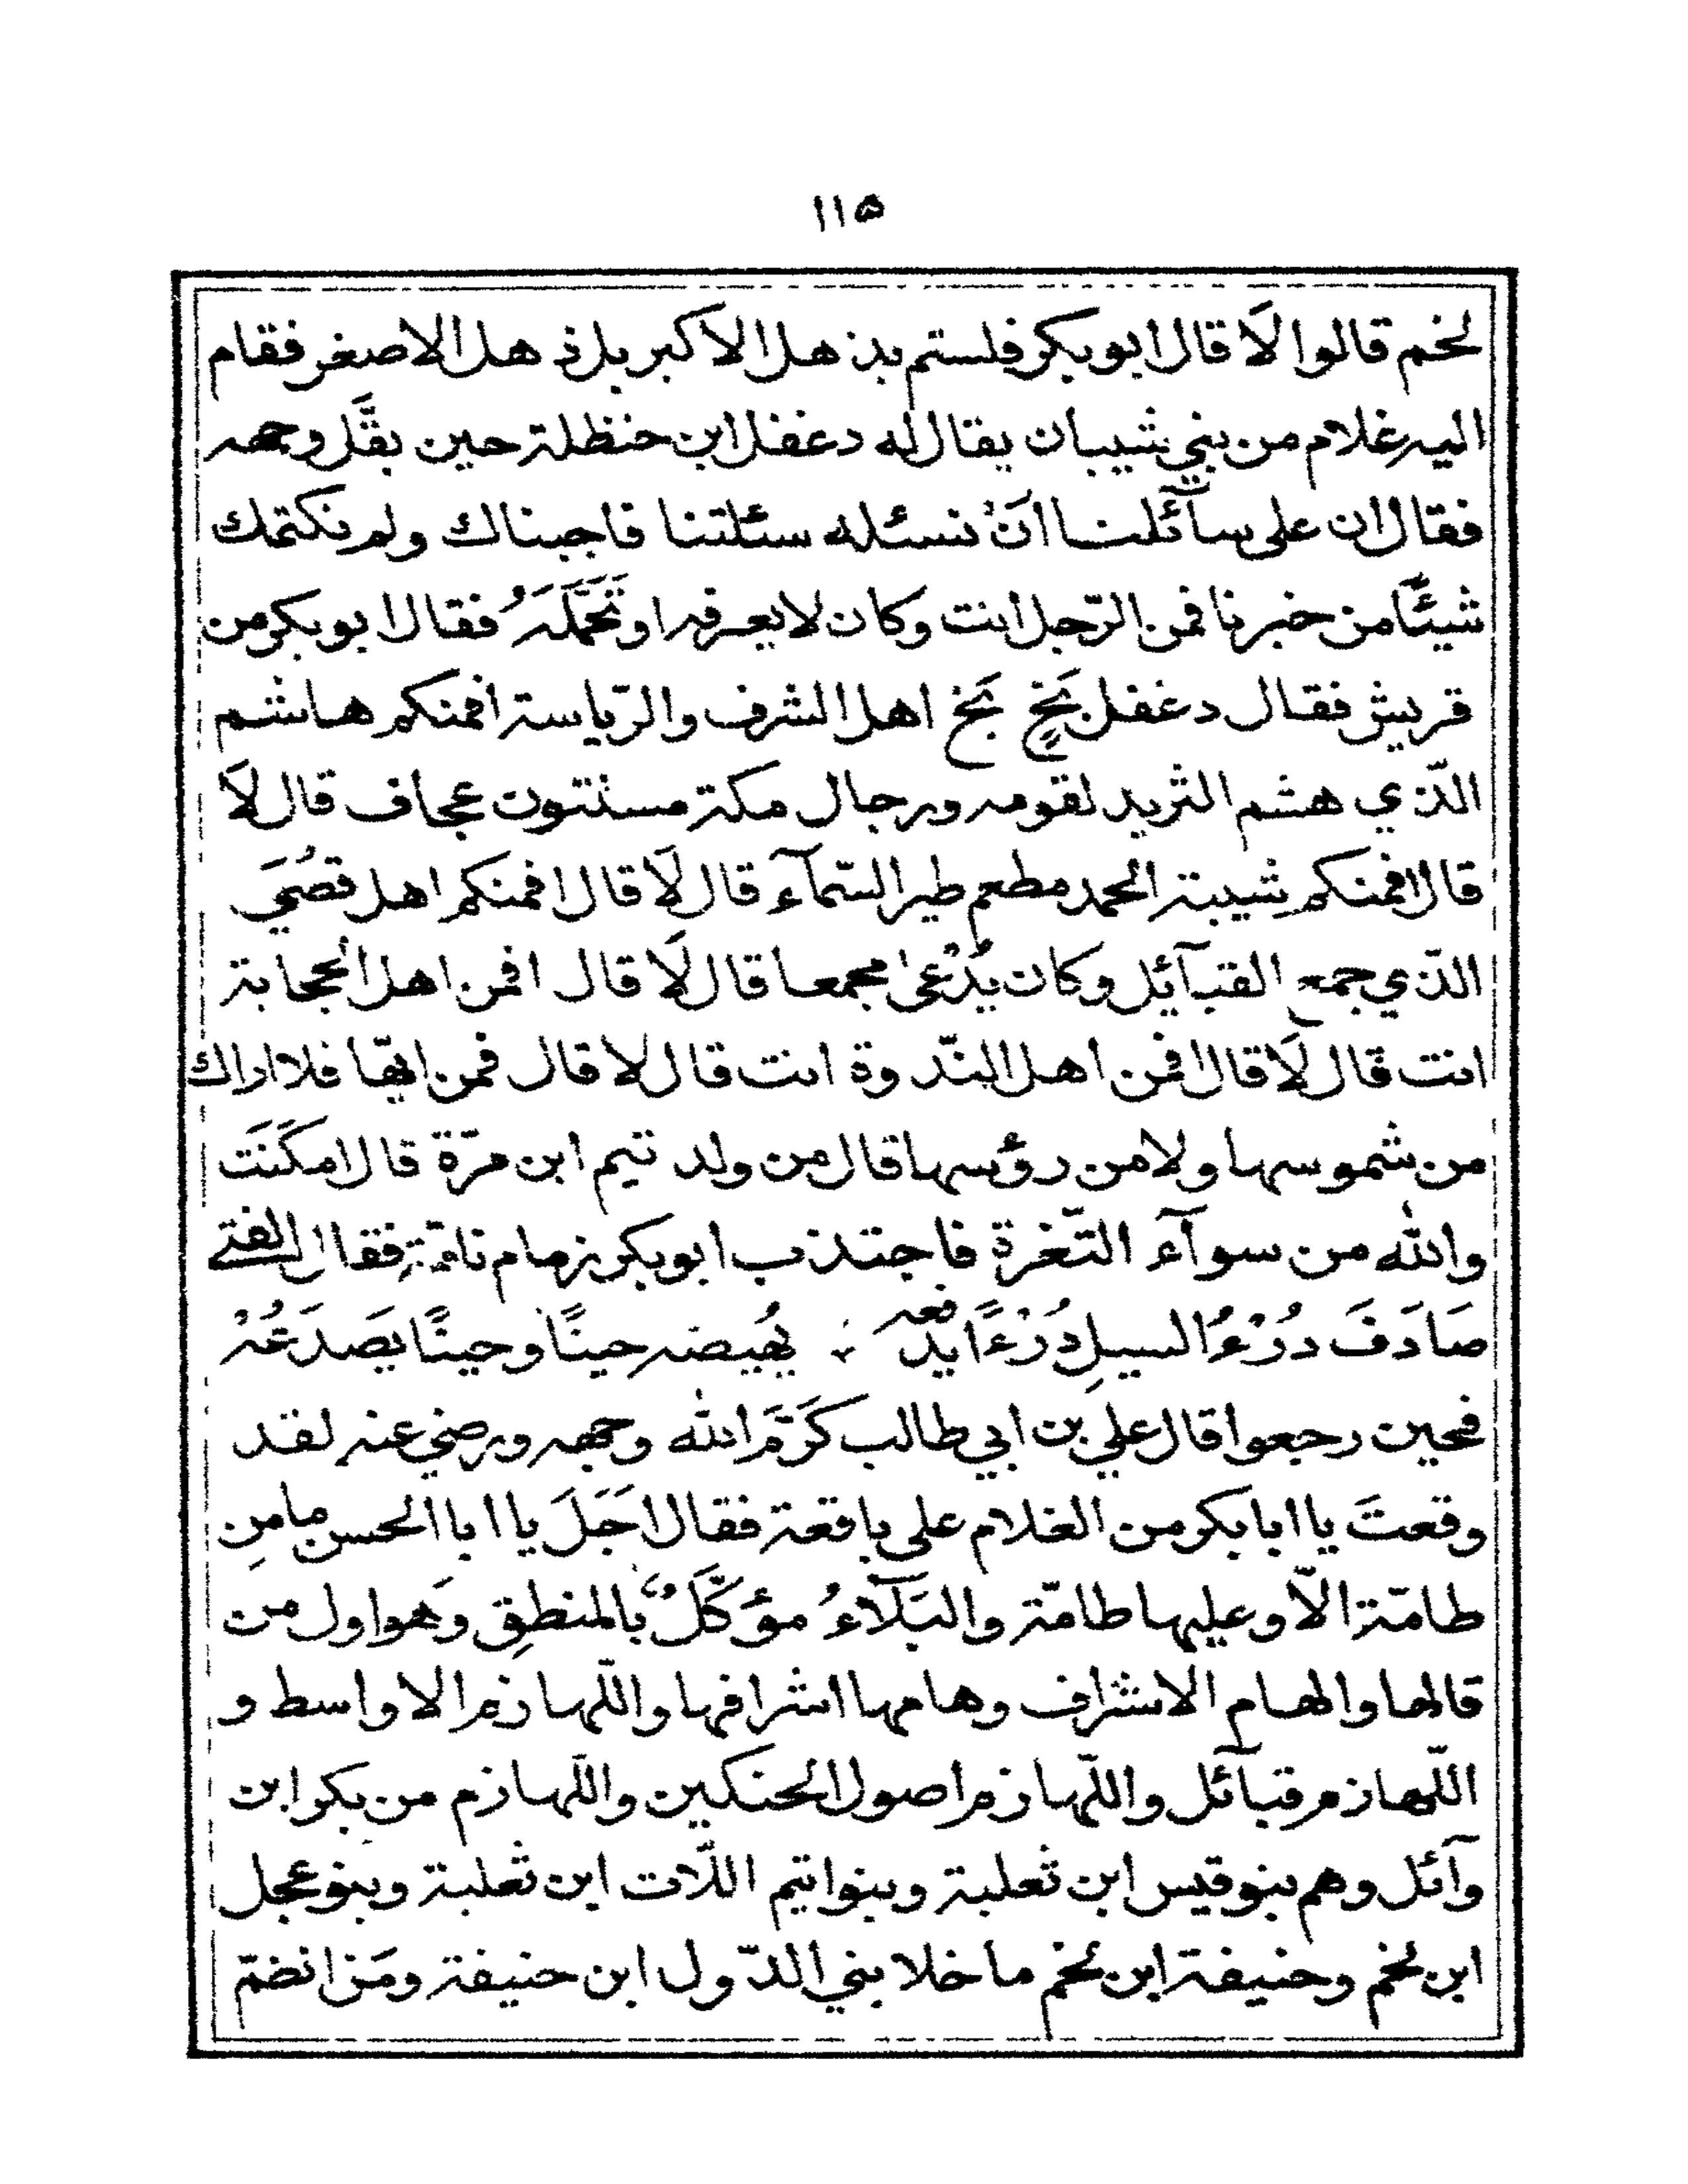 ١١٥
لخم قالوا لَا قال ابو بكر فلستم بذهل الاكبر بل ذهل الاصغر فقام
اليه غلام من بني شيبان يقال له دغفل ابن حنظلة حين بقَّل وجهه
فقال ان على سآئلنا انْ نسئله سئلتنا فاجبناك ولم نكتمك
شيئًا من خبرنا فمن الرّجل انت وكان لا يعرفه او تَحَمَّلَهُ فقال ابو بكر من
قريش فقال دغفل بَخٍ بَخ اهل الشرف والرّياسة أفمنكم هاشم
الذّي هشم الثريد لقومه ورجال مكة مسنتون عجاف قال لَا
قال افمنكم شيبة الحمد مطعم طير السّمآء قال لَا قال افمنكم اهل قصُيَ
الذّي جمع القبآئل وكان يُدْعىٰ مجمعا قال لَا قال افمن اهل الحجابة
انت قال لَا قال افمن اهل النّدوة انت قال لا قال فمن ايّها فلا اراك
من شموسها ولا من رؤسها قال من ولد تيم ابن مرّة قال امكَنَت
والله من سوآء الثّغرة فاجتذب ابو بكر زمام ناقته فقال الفتى
صَادَفَ دُرْءُ السيلِ دُرْءًا يدفعه ∴ يُهيضه حينًا وحينًا يصَدَعُهْ
فحين رجعوا قال علي بن ابي طالب كَرَّمَ الله وجهه ورضي عنه لقد
وقعتَ يا ابا بكر من الغلام على باقعة فقال اَجَلَ يا ابا الحسن ما مِن
طامّة الّا وعليها طامّة والبَلَآءُ مؤكَّلٌ بالمنطقِ وَهو اول من
قالها والهام الاشراف وهامها اشرافها واللّهازم الاواسط و
اللّهازم قبآئل واللّهازم اصول الحنكين واللّهازم من بكر ابن
وآئل وهم بنو قيس ابن ثعلبة وبنو اتيم اللّات ابن ثعلبة وبنو عجل
ابن لخم وحنيفة ابن لخم ما خلا بني الدّول ابن حنيفة ومَن انضمّ